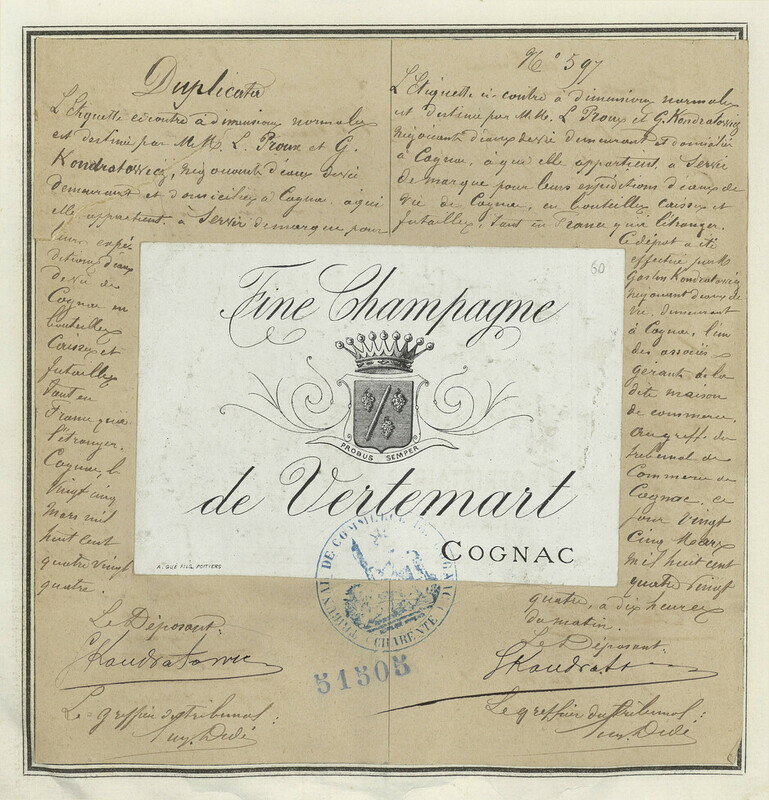 Duplicata
L'Etiquette ci-contre à dimensions normales
est destinée par M.M. L. Proux et G.
Kondratowicz, négociants d'eaux de vie
demeurant et domiciliés à Cognac, à qui
elle appartient, à Servir de marque pour
leurs expé
ditions d'eaux
de vie de
Cognac en
bouteilles
Caisses et
futailles
tant en
France qu'à
l'étranger.
Cognac, le
Vingt cinq
Mars mil
huit cent
quatre vingt
quatre.
Le Déposant:
G Kondratowicz
Le greffier du tribunal:
N° 597
L'Etiquette ci-contre à dimensions normales
est destinée par M.M. L Proux et G. Kondratowicz
négociants d'eaux de vie demeurant et domiciliés
à Cognac, à qui elle appartient, à Servir
de marque pour leurs expéditions d'eaux de
vie de Cognac, en bouteilles caisses et
futailles, tant en France qu'à l'étranger.
Ce dépôt a été
effectué par M.
Gaston Kondratowicz
négociant d'eaux de
vie, demeurant
à Cognac, l'un
des associés
gérants de la
dite maison
de commerce,
au greffe du
tribunal de
Commerce de
Cognac, ce
jour vingt
cinq Mars
mil huit cent
quatre vingt
quatre, à dix heures
du matin.
Le Déposant:
Le greffier du tribunal:
60
Fine Champagne
PROBUS SEMPER
de Vertemart
COGNAC
POITIERS
TRIBUNAL DE COMMERCE DE COGNAC
(CHARENTE)
51505